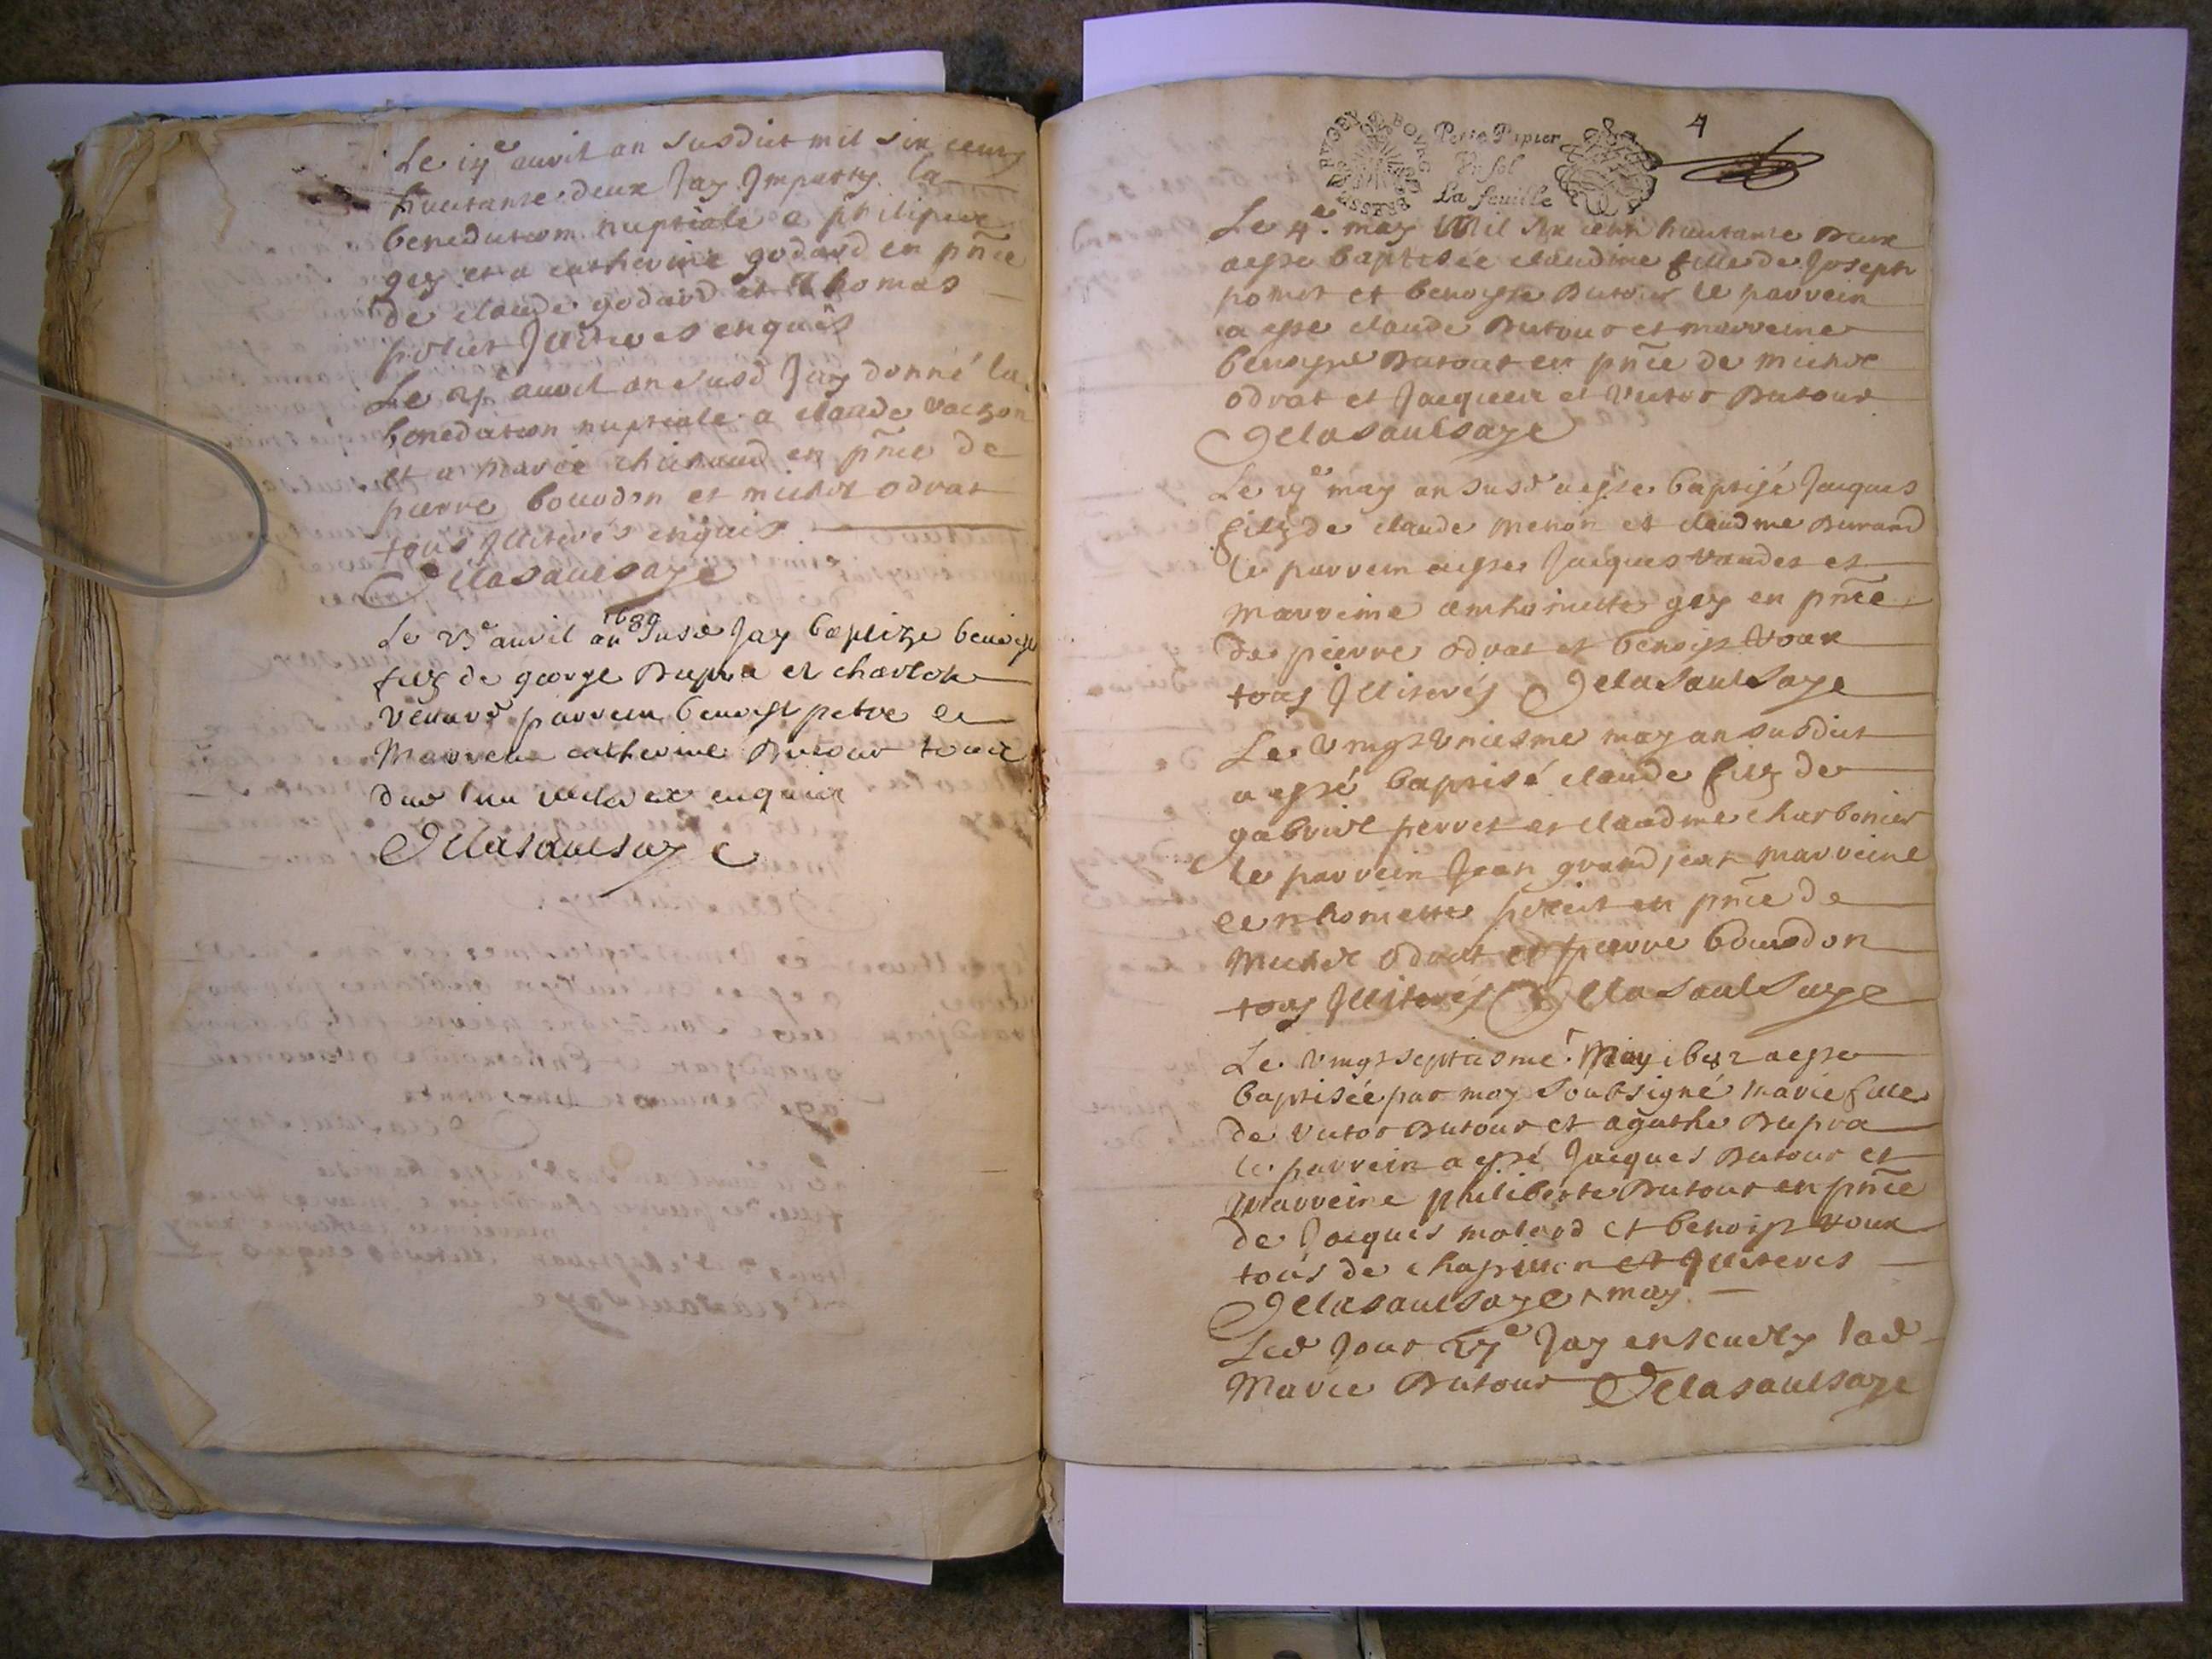 Le 14e avril an susdict mil six cents
huictante deux Jay Imparty la
benediction nuptiale a philipue
gey et a catherine godard en pñce
de claude godard et thomas
poliet Illiteres enquis
Le avril an susd Jay donné la
benediction nuptiale a claude
et a marie en pñce de
pierre bourdon et michel odrat
tous Illiterés enquis
Delasaulsaye
1689
Le 23e avril an susd Jay baptize benoist
filz de george Dupra et charlote
parrein benoist petre et
Marrene catherine Dutour touts
enquis
Delasaulsaye
BUGEY BOURG BRESSE
Petit Papier
Un sol
La feuille
4
Le 4e. may Mil Six cent huictante Deux
a esse baptisée claudine fille de Joseph
pomet et benoyste Dutour le parrein
a esse claude Dutour et marreine
benoyste Dutour en pñce de michel
odrat et Jacques et Victor Dutour
Delasaulsaye
Le may an susd a esse baptisé Jacques
filz de claude menon et claudine Durand
le parrein a esse Jacques vaudet et
marreine anthoinette gey en pñce
de pierre odrat et benoist voux
tous Illiterés Delasaulsaye
Le vingt uniesme may an susdict
a esté baptisé claude filz de
gabriel perret et claudine charbonier
le parrein Jean grandjean marreine
enthoniette poliet en pñce de
michel odrat et pierre bourdon
tous Illiterés Delasaulsaye
Le vingt septiesme May 1682 a esse
baptisée par moy soubsigné marie fille
de victor Dutour et agathe Dupra
le parrein a esté Jacques Dutour et
Marreine philiberte Dutour en pñce
de Jacques molard et benoist voux
tous de et Illiteres
Delasaulsaye may
Led Jour 27e Jay ensevely lad
Marie Dutour Delasaulsaye